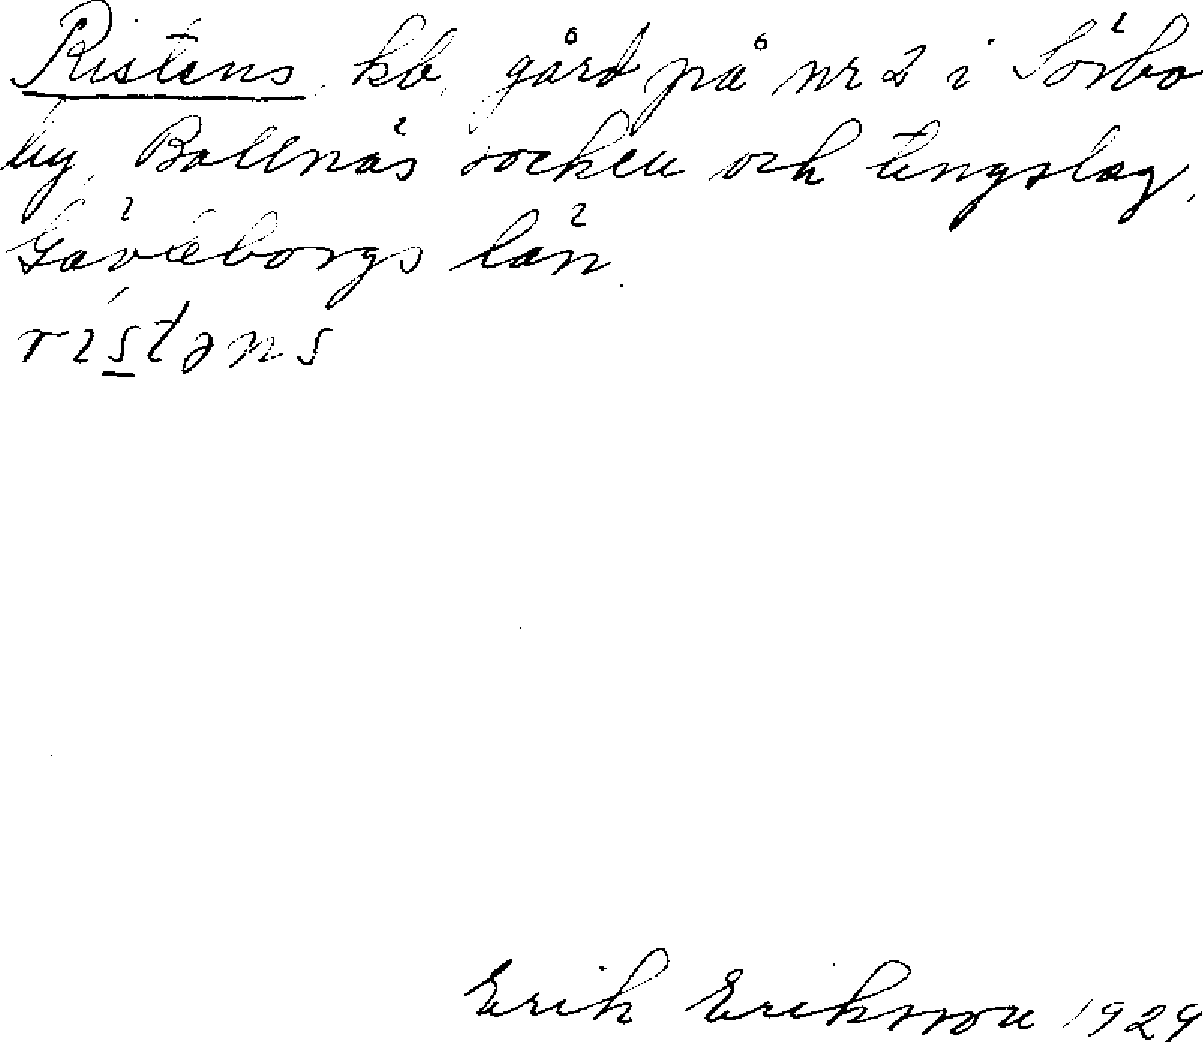 Ristens, kb, gård på nr 2 i Sörbo
by, Bollnäs socken och tingslag,
Gävleborgs län.
rístəns
Erik Eriksson 1929